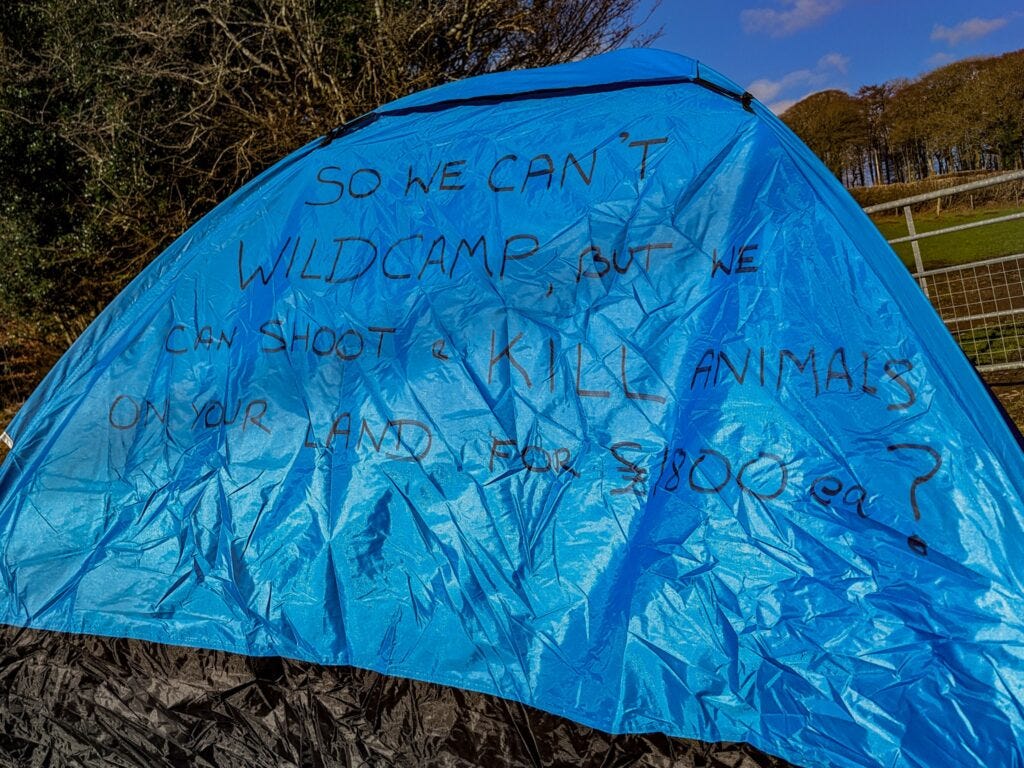 SO WE CAN'T
WILDCAMP, BUT WE
CAN SHOOT & KILL ANIMALS
ON YOUR LAND, FOR £1800 ea ?